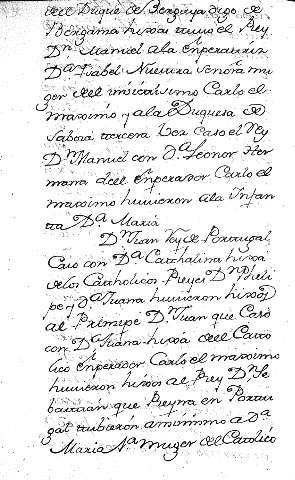 del Duque de Bergaña digo de
Bergama hixa tuuo el Rey
Dn. Manuel ala Enperatriz
Da. Ysabel Nuestra Senora mu
ger del inuictissimo Carlo el
maximo y ala Duquesa de
Saboia tercera Vez Caso el Rey
Dn. Manuel con Da. Leonor Her
mana del Enperador Carlo el
maximo huuieron ala Infan
ta Da. Maria
Dn. Juan Rey de Portugal
Caso con Da. Cathalina hixa
de los Catholicos Reyes Dn. Pheli
pe y Da. Juana huuieron hixos
al Prinsipe Dn. Juan que Caso
con Da. Juana hixa del Cato
lico Enperador Carlo el maximo
huuieron hixos al Rey Dn. Se
bastian que Reyna en Portu
gal tubieron asimismo a Da.
Maria Na. muger del Catolico